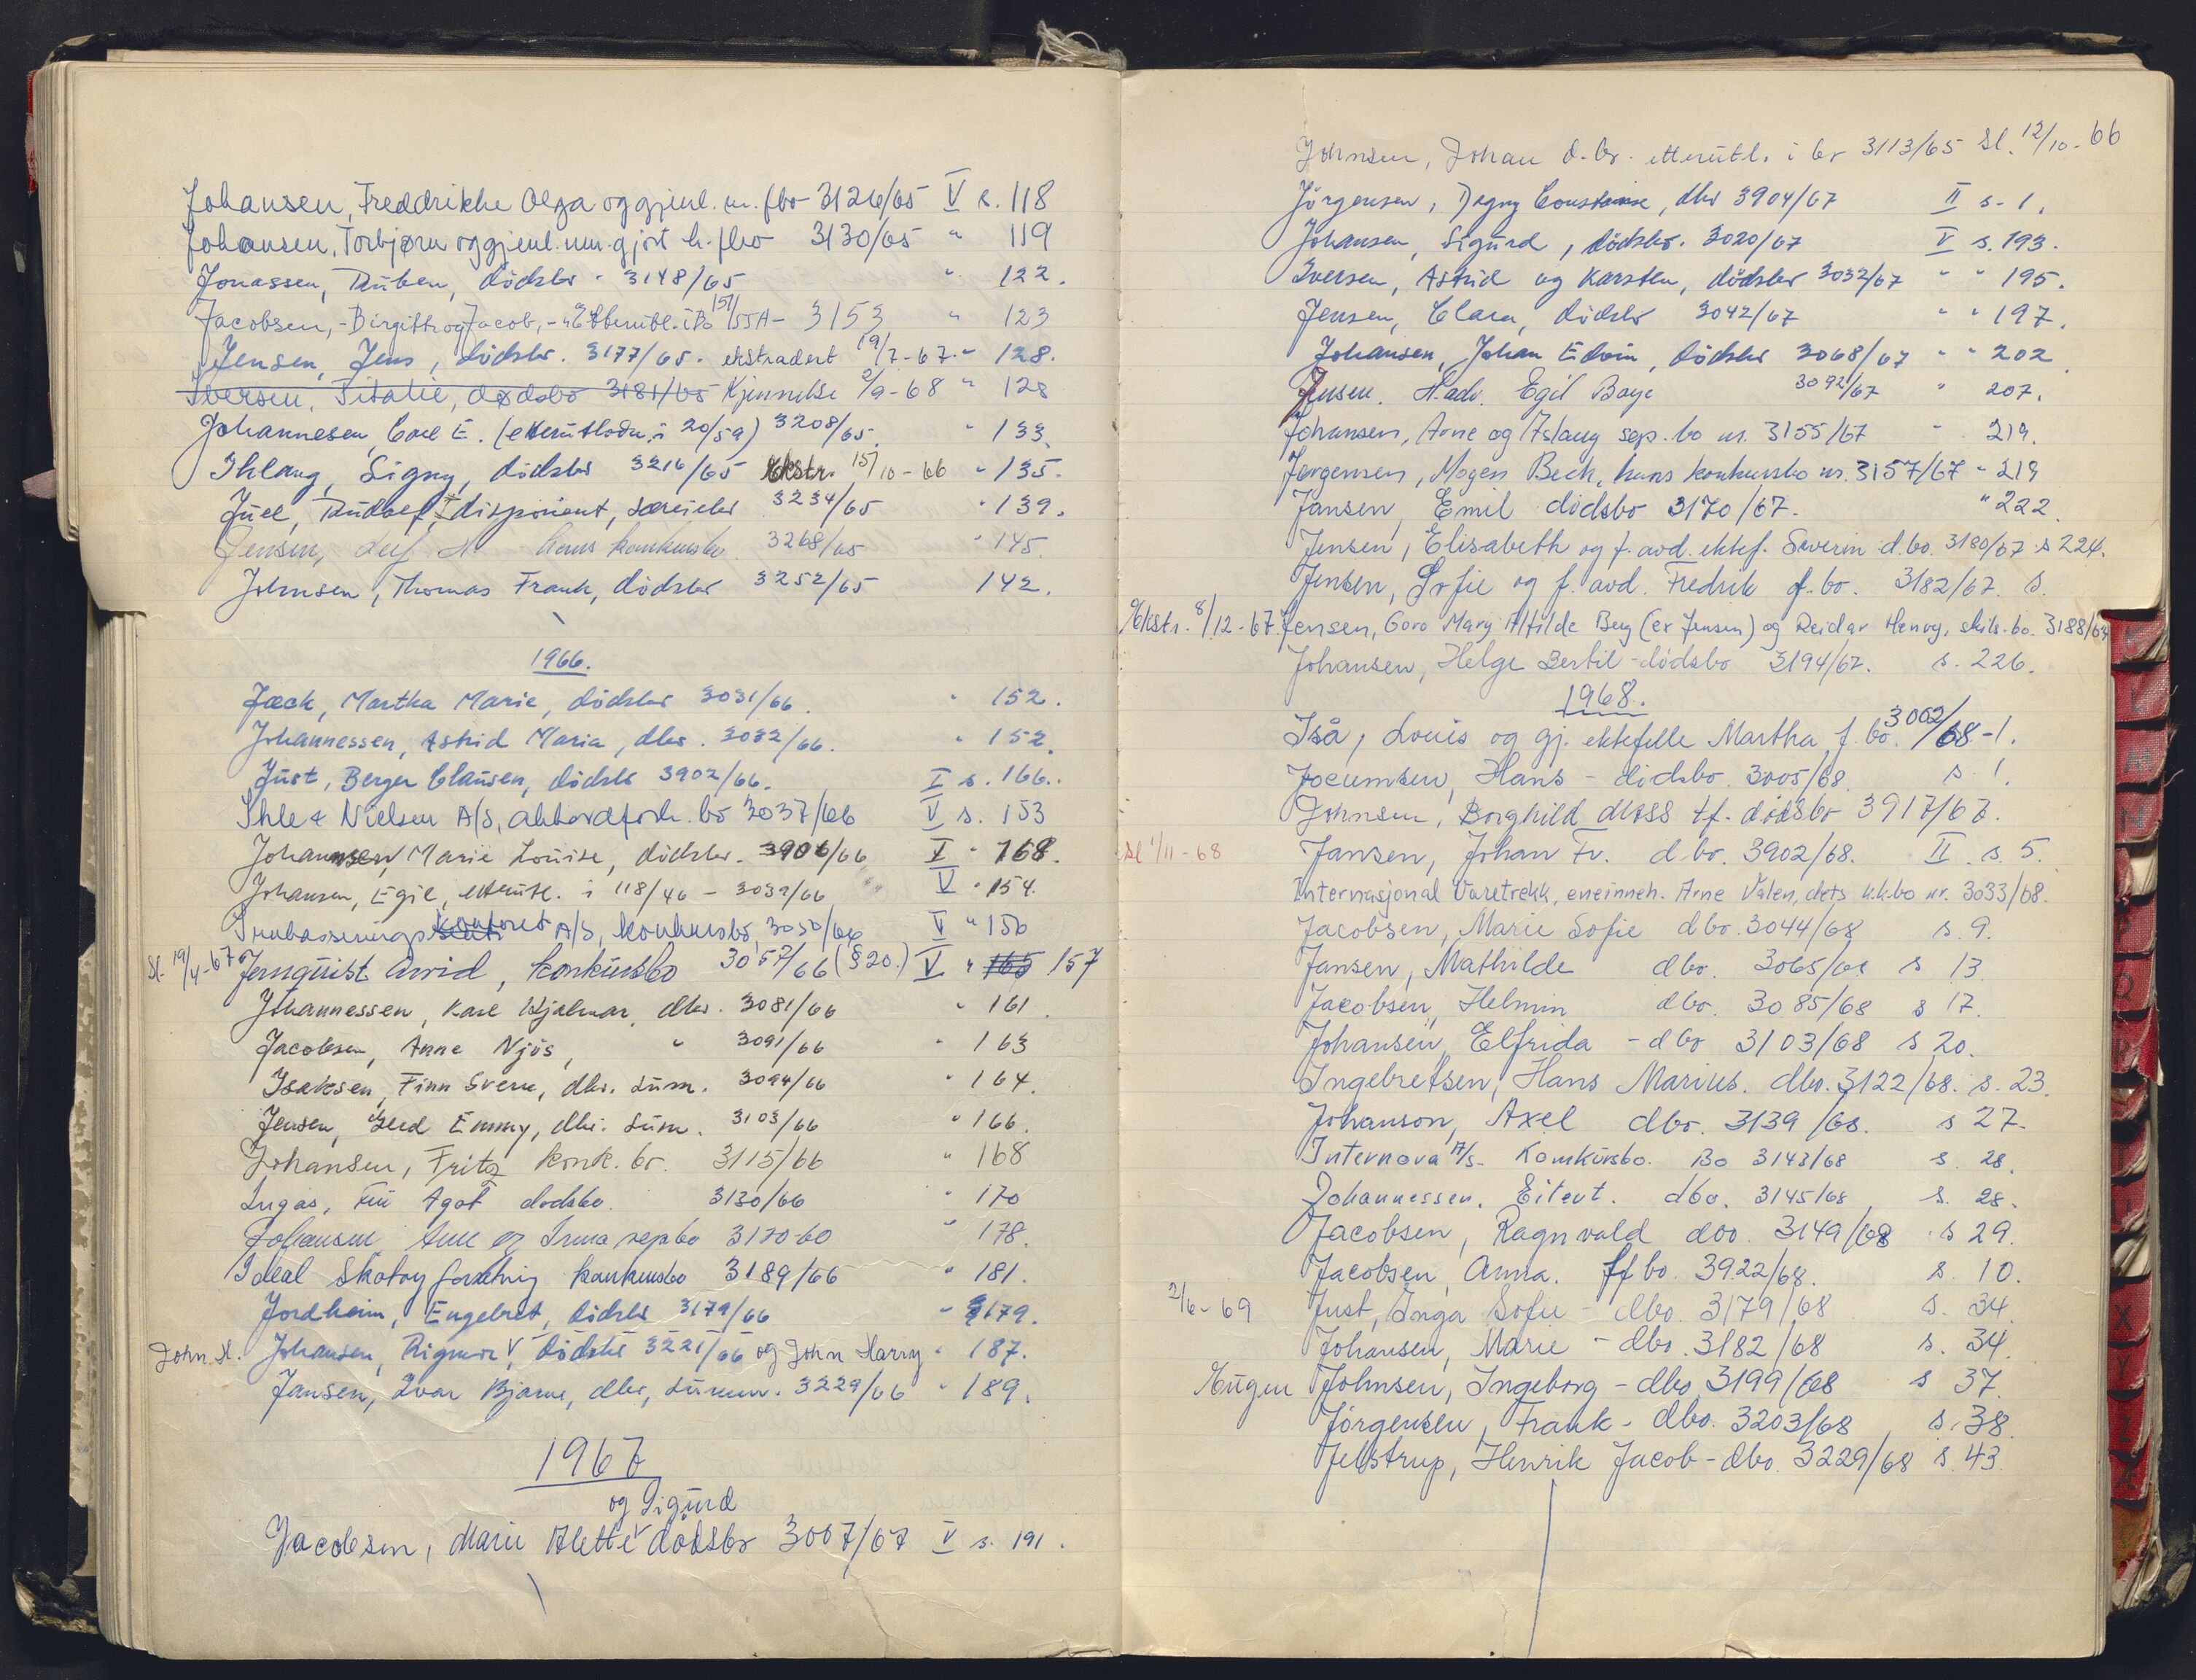 Johansen, Freddrikke Olga og gjenl. m. fbo 3126/65 V s. 118
Johansen, Torbjørn og gjenl. um. gjort h. fbo 3130/65 " 119
Jonassen, Ruben, dödsbo 3148/65 " 122.
Jacobsen, - Birgith og Jacob, - 3153 " 123
Jensen, Jens, dödsbo. 3177/65. ekstradert 19/7-67. " 128.
Iversen, Titalie, dødsbo 3181/65 Kjennelse 2/9-68 " 128
Johannesen, Carl E. (etterutlodn. i 20/59) 3208/65. " 133.
Ihlang, Signy, dödsbo 3216/65 Ekstr. 15/10-66 " 135.
Juel, Rudolf, disponent, særeiebo 3234/65 " 139.
Jensen, Leif H. hans konkursbo 3268/65 " 145.
Johnsen, Thomas Frank, dödsbo 3252/65 142.
1966.
Jæck, Martha Marie, dödsbo 3031/66. " 152.
Johannessen, Astrid Maria, dbo. 3032/66. " 152.
Just, Berger Clausen, dödsbo 3902/66. I s. 166..
Ihle & Nielsen A/S, akkordforh. bo 3037/66 V s. 153
Johannsen, Marie Louise, dödsbo. 3906/66 I " 168.
Johansen, Egil, etterutl. i 118/46 - 3039/66 V " 154.
Inkasseringskontoret A/S, konkursbo, 3050/66 V " 156
Sl. 19/4-67 Jernquist Arvid, konkursbo 3057/66 (§20.) V " 165 157
Johannessen, Karl Hjalmar, dbo. 3081/66 " 161.
Jacobsen, Anne Njös, " 3091/66 " 163
Isaksen, Finn Sverre, dbo. sum. 3094/66 " 164.
Jensen, Gerd Emmy, dbo. sum. 3103/66 " 166.
Johansen, Fritz konk. bo. 3115/66 " 168
Agot dødsbo. 3130/66 " 170
Johansen og Irma sepbo 3170-60 " 178.
Ideal Skotøyforretning konkursbo 3189/66 " 181.
Jordheim, Engebret, dödsbo 3179/66 " 179.
John H. Johansen, Rigmor V, dödsbo 3221/66 og John Harry " 187.
Jansen, Ivar Bjarne, dbo, summ. 3229/66 " 189.
1967
og Sigurd
Jacobsen, Marie Alette dödsbo 3007/67 V s. 191.
Johnsen, Johan d.bo. etterutl. i bo 3113/65 Sl. 12/10-66
Jörgensen, Dagny Constanse, dbo 3904/67 II s. 1.
Johansen, Sigurd, dödsbo. 3020/67 V s. 193.
Iversen, Astrid og Karsten, dödsbo 3032/67 " " 195.
Jensen, Clara, dödsbo 3042/67 " " 197.
Johansen, Johan Edvin, dödsbo 3068/67 " " 202
Jensen. H.adv. Egil Baye 3092/67 " 207.
Johansen, Arne og Aslaug sep. bo nr. 3155/67 " 219.
Jørgensen, Mogens Bech, hans konkursbo nr. 3157/67 - 219
Jansen, Emil dödsbo 3170/67. " 222.
Jensen, Elisabeth og f. avd. ektef. Severin d.bo. 3180/67 s 224.
Jensen, Sofie og f. avd. Fredrik f. bo. 3182/67. s.
Ekstr. 8/12-67. Jensen, Goro Mary Alfilde Berg (ex Jensen) og Reidar Henry, skils. bo. 3188/67
Johansen, Helge Bertil - dödsbo 3194/67. s. 226.
1968.
Iså, Louis og gj. ektefelle Martha f. bo. 3002/68 - 1.
Jocumsen, Hans - dödsbo. 3005/68. s. 1.
Johnsen, Borghild Moss tf. dödsbo 3917/67.
Sl 1/11-68 Jansen, Johan Fr. d.bo. 3902/68. II. s. 5.
Internasjonal Varetrekk, eneinneh. Arne Valen, dets k.k.bo nr. 3033/68.
Jacobsen, Marie Sofie dbo. 3044/68 s. 9.
Jansen, Mathilde dbo. 3065/68 s 13
Jacobsen, Helmin dbo. 3085/68 s 17.
Johansen, Elfrida - dbo 3103/68 s 20.
Ingebretsen, Hans Marius. dbo. 3122/68. s. 23.
Johanson, Axel dbo. 3139/68. s 27.
Internova A/S - Konkursbo. Bo 3143/68 s. 28.
Johannessen, Eitevt. dbo. 3145/68 s. 28.
Jacobsen, Ragnvald dbo. 3149/68 s 29.
Jacobsen, Anna. ff bo. 3922/68. s. 10.
2/6-69 Just, Inga Sofie - dbo. 3179/68 s. 34
Johansen, Marie - dbo. 3182/68 s. 34.
Eugen Johnsen, Ingeborg - dbo 3199/68 s 37.
Jörgensen, Frank - dbo. 3203/68 s. 38.
Jelstrup, Henrik Jacob - dbo. 3229/68 s. 43